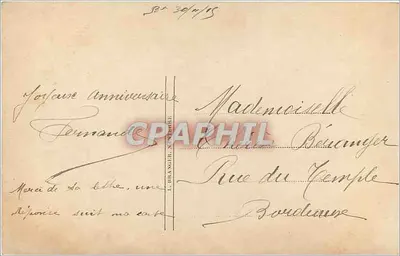 30/11/15
Joyeux Anniversaire
Fernande
Merci de ta lettre, une
réponse suit ma carte
Mademoiselle
Béranger
Rue du Temple
Bordeaux
CPAPHIL